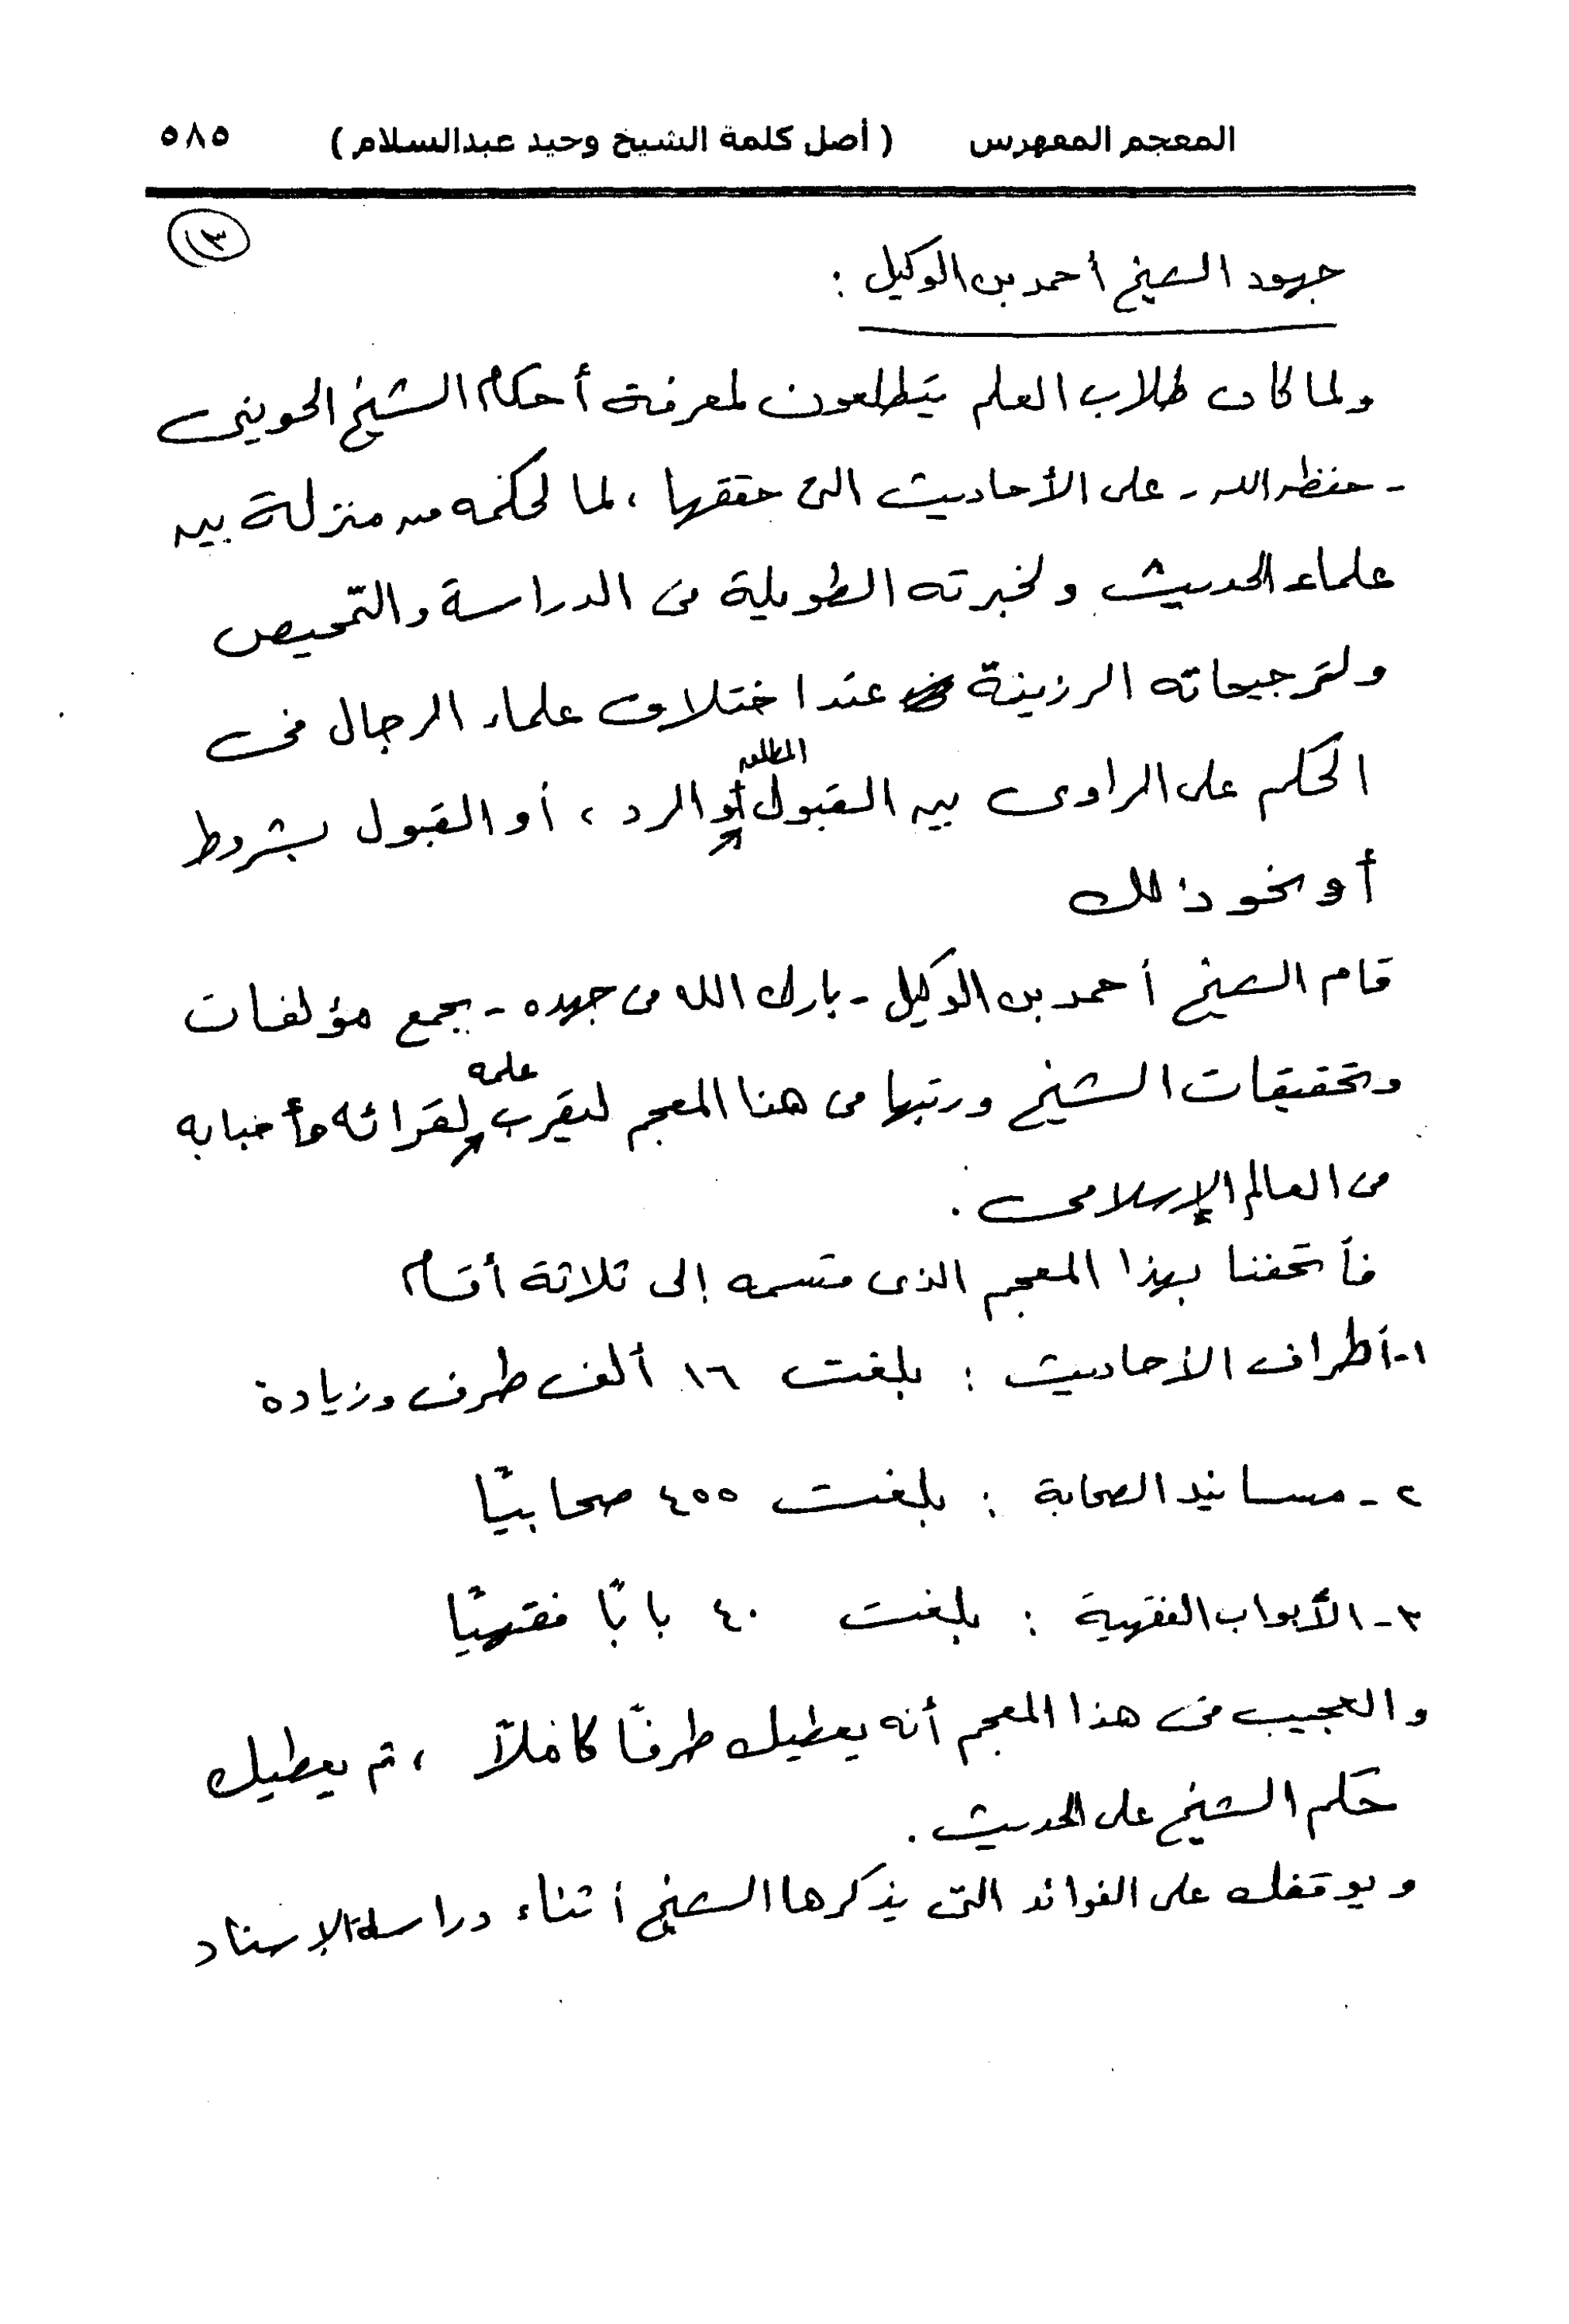 المعجم المفهرس (أصل كلمة الشيخ وحيد عبدالسلام) ٥٨٥
٣
جهود الشيخ أحمد بن الوكيل :
ولما كان طلاب العلم يتطلعون لمعرفة أحكام الشيخ الحويني
- حفظه الله - على الأحاديث التي حققها ، لما لحكمه من منزلة بين
علماء الحديث ولخبرته الطويلة في الدراسة والتمحيص
ولترجيحاته الرزينة عند اختلاف علماء الرجال في
الحكم على الراوى بين القبول المطلق أو الرد ، أو القبول بشروط
أو نحو ذلك
قام الشيخ أحمد بن الوكيل - بارك الله في جهده - بجمع مؤلفات
وتحقيقات الشيخ ورتبها في هذا المعجم ليقرب علمه لقرائه وأحبابه
في العالم الإسلامى .
فأتحفنا بهذا المعجم الذى قسمه إلى ثلاثة أقسام
١- أطراف الأحاديث : بلغت ١٦ ألف طرف وزيادة
٢ - مسانيد الصحابة : بلغت ٤٥٥ صحابيًا
٣ - الأبواب الفقهية : بلغت ٤٠ بابًا فقهيًا
والعجيب في هذا المعجم أنه يعطيك طرفًا كاملًا ، ثم يعطيك
حكم الشيخ على الحديث .
ويوقفك على الفوائد التي يذكرها الشيخ أثناء دراسة الإسناد